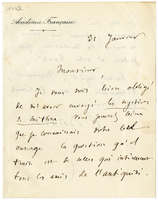 Académie Française
21 Janvier
Monsieur,
Je vous suis bien obligé
de m'avoir envoyé les mystères
de Mithra vous pensez bien
que je connaissais votre bel
ouvrage la question qu'il
traite est de celles qui intéressent
tous les amis de l'antiquité.